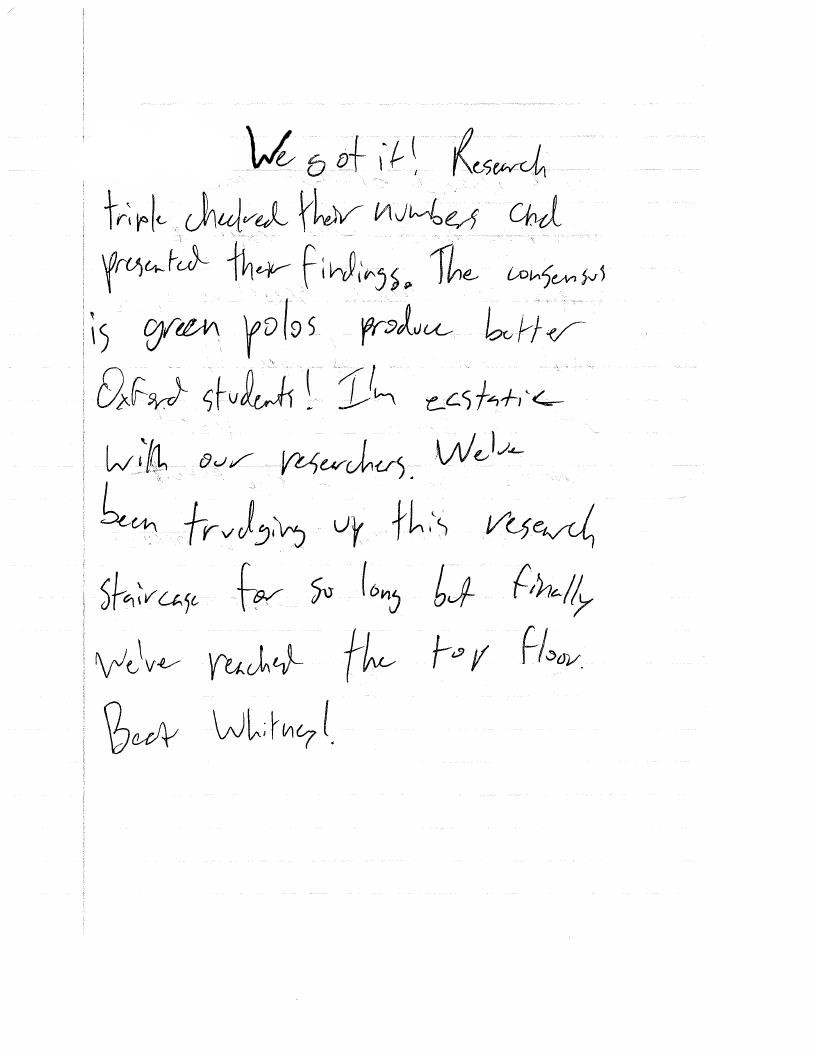 We got it! Research
triple checked their numbers and
presented their findings. The consensus
is green polos produce better
Oxford students! I'm ecstatic
with our researchers. We've
been trudging up this research
staircase for so long but finally
we've reached the top floor.
Beat Whitney!